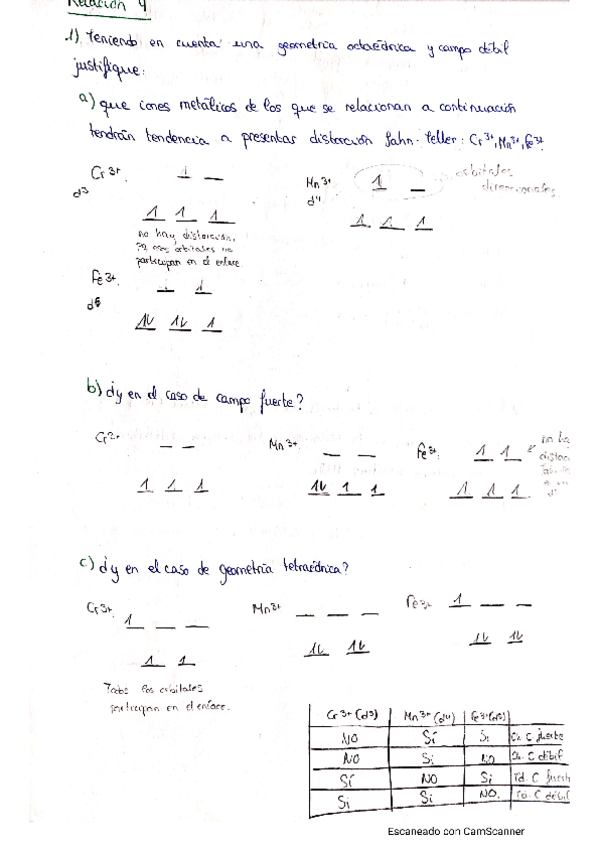 Relación 4
1) Teniendo en cuenta una geometría octaédrica y campo débil
justifique:
a) que iones metálicos de los que se relacionan a continuación
tendrán tendencia a presentar distorsión Jahn-Teller: Cr3+, Mn3+, Fe3+
Cr3+.
d3
no hay distorsión,
ya esos orbitales no
participan en el enlace.
Mn3+
d4
orbitales
direccionales.
Fe3+.
b) ¿y en el caso de campo fuerte?
Mn3+
Fe3+.
c) ¿y en el caso de geometría tetraédrica?
Cr3+.
Mn3+
Fe3+
Todos los orbitales
participan en el enlace.
Cr3+(d3) Mn3+(d4) Fe3+(d5)
NO Sí Sí Oh. C fuerte
NO Sí NO Oh. C débil
SÍ NO Sí Td. C
Sí Sí NO. Td. C débil
Escaneado con CamScanner